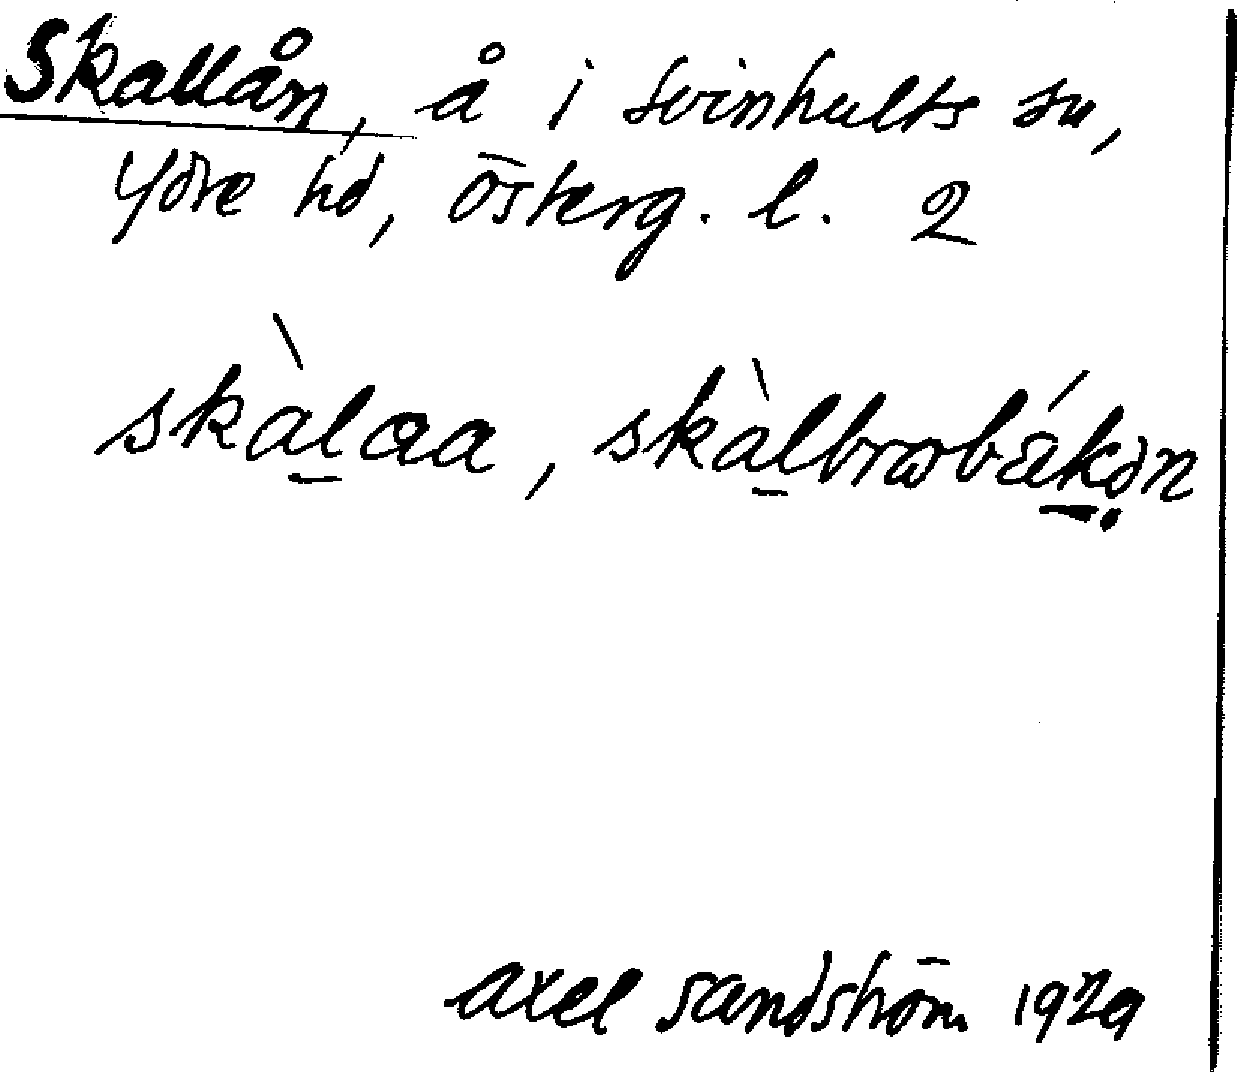 Skallån, å i Svinhults sn,
Ydre hd, Österg. l. 2
skàlaa, skàlbrobǽkən
Axel Sandström 1929